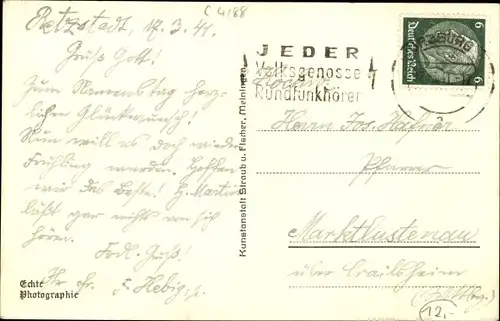 C 4188
Retzstadt, 17.3.41.
Grüß Gott!
Zum Namenstag herz-
lichen Glückwunsch!
Nun will es doch wieder
Frühling werden. Hoffen
wir das Beste! H. Martin
läßt gar nichts von sich
hören.
Frdl. Gruß!
Ihr fr. F. Hebig
Echte
Photographie
Kunstanstalt Straub u. Fischer, Meiningen
JEDER
Volksgenosse
Rundfunkhörer
6 Deutsches Reich 6
Herrn Jos. Hafner
Pfarrer
Marktlustenau
über Crailsheim
(Württbg.)
12,-